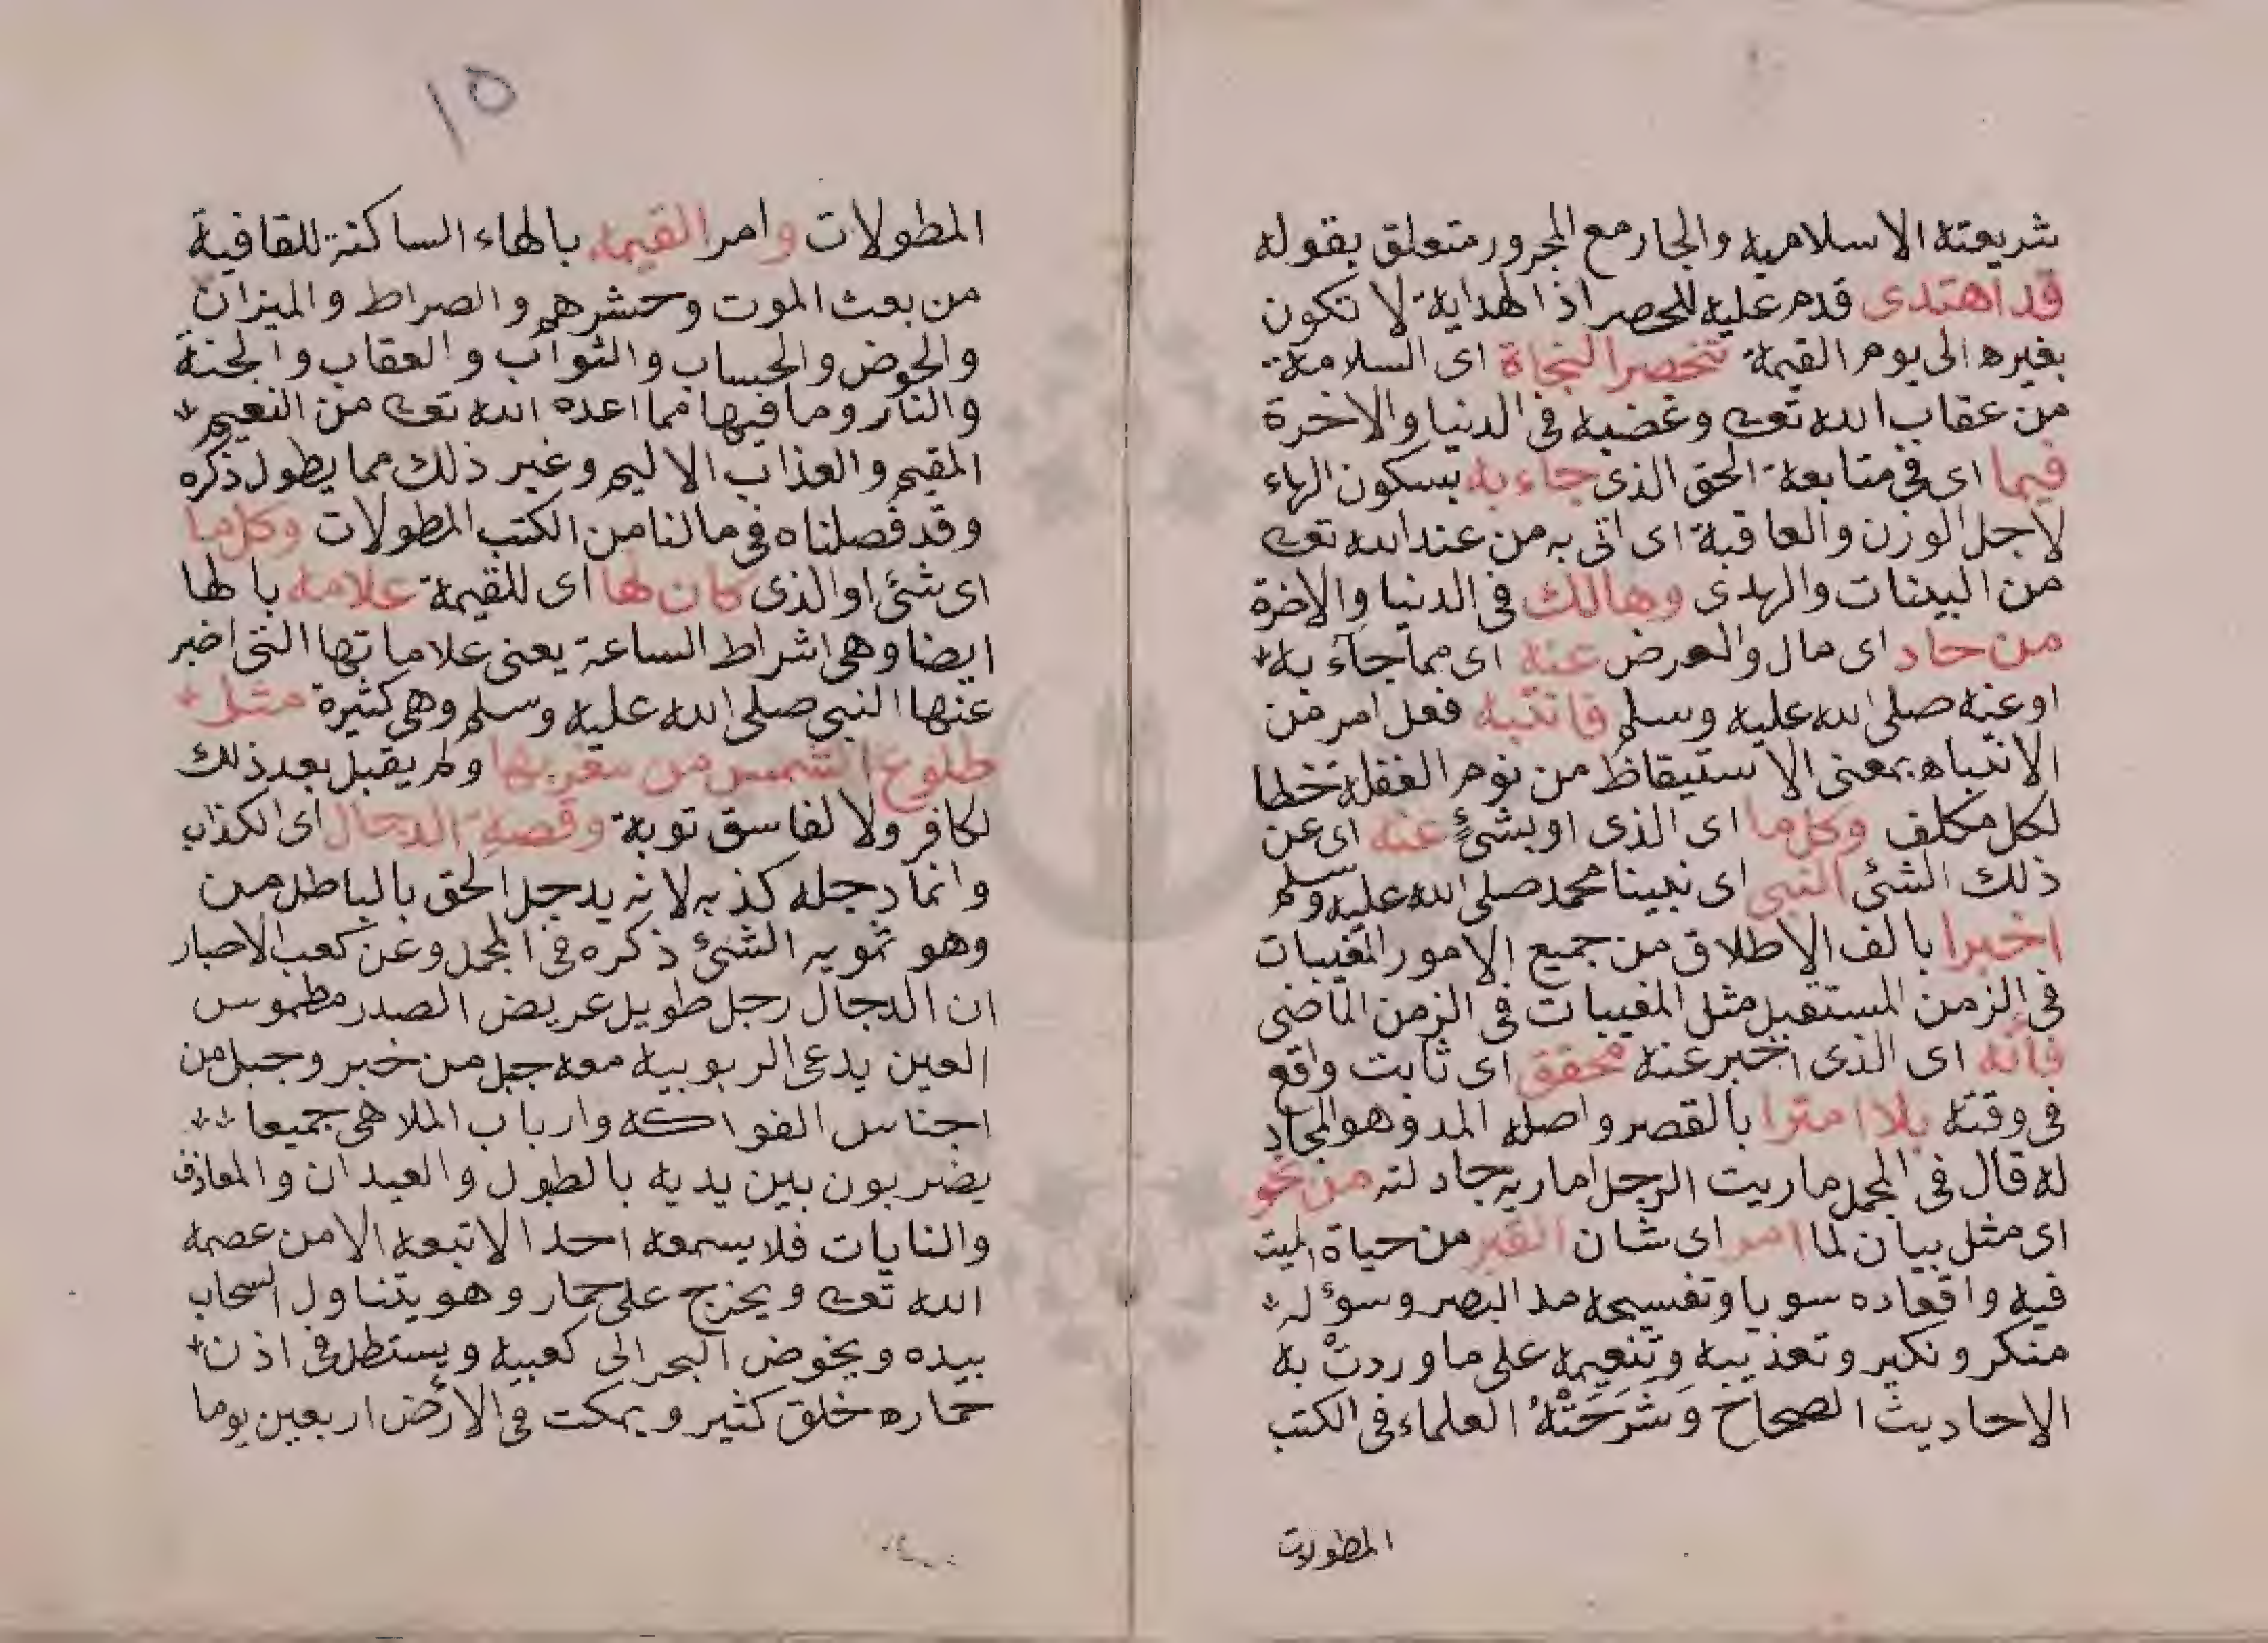 شريعته الاسلاميه والجار مع المجرور متعلق بقوله
قد اهتدى قدم عليه للحصر اذ الهداية لا تكون
بغيره الى يوم القيمة تنحصر النجاة اى السلامة
من عقاب الله تعـ وغضبه فى الدنيا والاخرة
فيما اى فى متابعة الحق الذى جاء به بسكون الهاء
لاجل الوزن والعاقبة اى اتى به من عند الله تعـ
من البينات والهدى وهالك فى الدنيا والاخرة
من حاد اى مال والعرض عنه اى مما جآء به
او عنه صلى الله عليه وسلم فانتبه فعل امر من
الانتباه بمعنى الاستيقاظ من نوم الغفلة خطا
لكل مكلف وكل ما اى الذى او بشئ عنه اى عن
ذلك الشئ النبى اى نبينا محمد صلى الله عليه وسلم
اخبرا بالف الاطلاق من جميع الامور المغيبات
فى الزمن المستقبل مثل المغيبات فى الزمن الماضى
فانه اى الذى اخبر عنه محقق اى ثابت واقع
فى وقته بلا امترا بالقصر واصله المد وهو المجاد
له قال فى المجمل ماريت الرجل اماريه جادلته من نحو
اى مثل بيان لما امر اى شان القبر من حياة الميت
فيه واقعاده سويا وتفسيحه مد البصر وسوءله
منكر ونكير وتعذيبه وتنعيمه على ما وردتْ به
الاحاديث الصحاح وَشَرَحَتْهُ العلماء فى الكتب
المطولات
١٥
المطولات وامر القيمه بالهاء الساكنة للقافية
من بعث الموت وحشرهم والصراط والميزان
والحوض والحساب والثواب والعقاب والجنة
والنار وما فيها مما اعده الله تعـ من النعيم
المقيم والعذاب الاليم وغير ذلك مما يطول ذكره
وقد فصلناه فى مالنا من الكتب المطولات وكل ما
اى شئ او الذى كان لها اى للقيمة علامه بالها
ايضا وهى اشراط الساعة يعنى علاماتها التى اخبر
عنها النبى صلى الله عليه وسلم وهى كثيرة مثل
طلوع الشمس من مغربها ولم يقبل بعد ذلك
لكافر ولا لفاسق توبة وقصة الدجال اى الكذاب
وانما دجله كذبه لانه يدجل الحق بالباطل من
وهو تمويه الشئ ذكره فى المجمل وعن كعب الاحبار
ان الدجال رجل طويل عريض الصدر مطموس
العين يدعى الربوبيه معه جبل من خبر وجبل من
اجناس الفواكه وارباب الملاهى جميعا
يضربون بين يديه بالطبول والعيدان والمعازف
والنايات فلا يسمعه احد الا تبعه الا من عصمه
الله تعـ ويخرج على حمار وهو يتناول السحاب
بيده ويخوض البحر الى كعبيه ويستظل فى اذن
حماره خلق كثير ويمكث فى الارض اربعين يوما